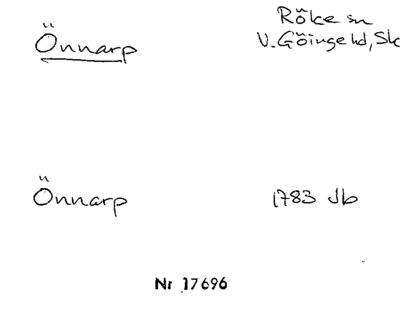 Önnarp
Röke sn
V. Göinge hd, Sk
Önnarp
1783 Jb
Nr 17696